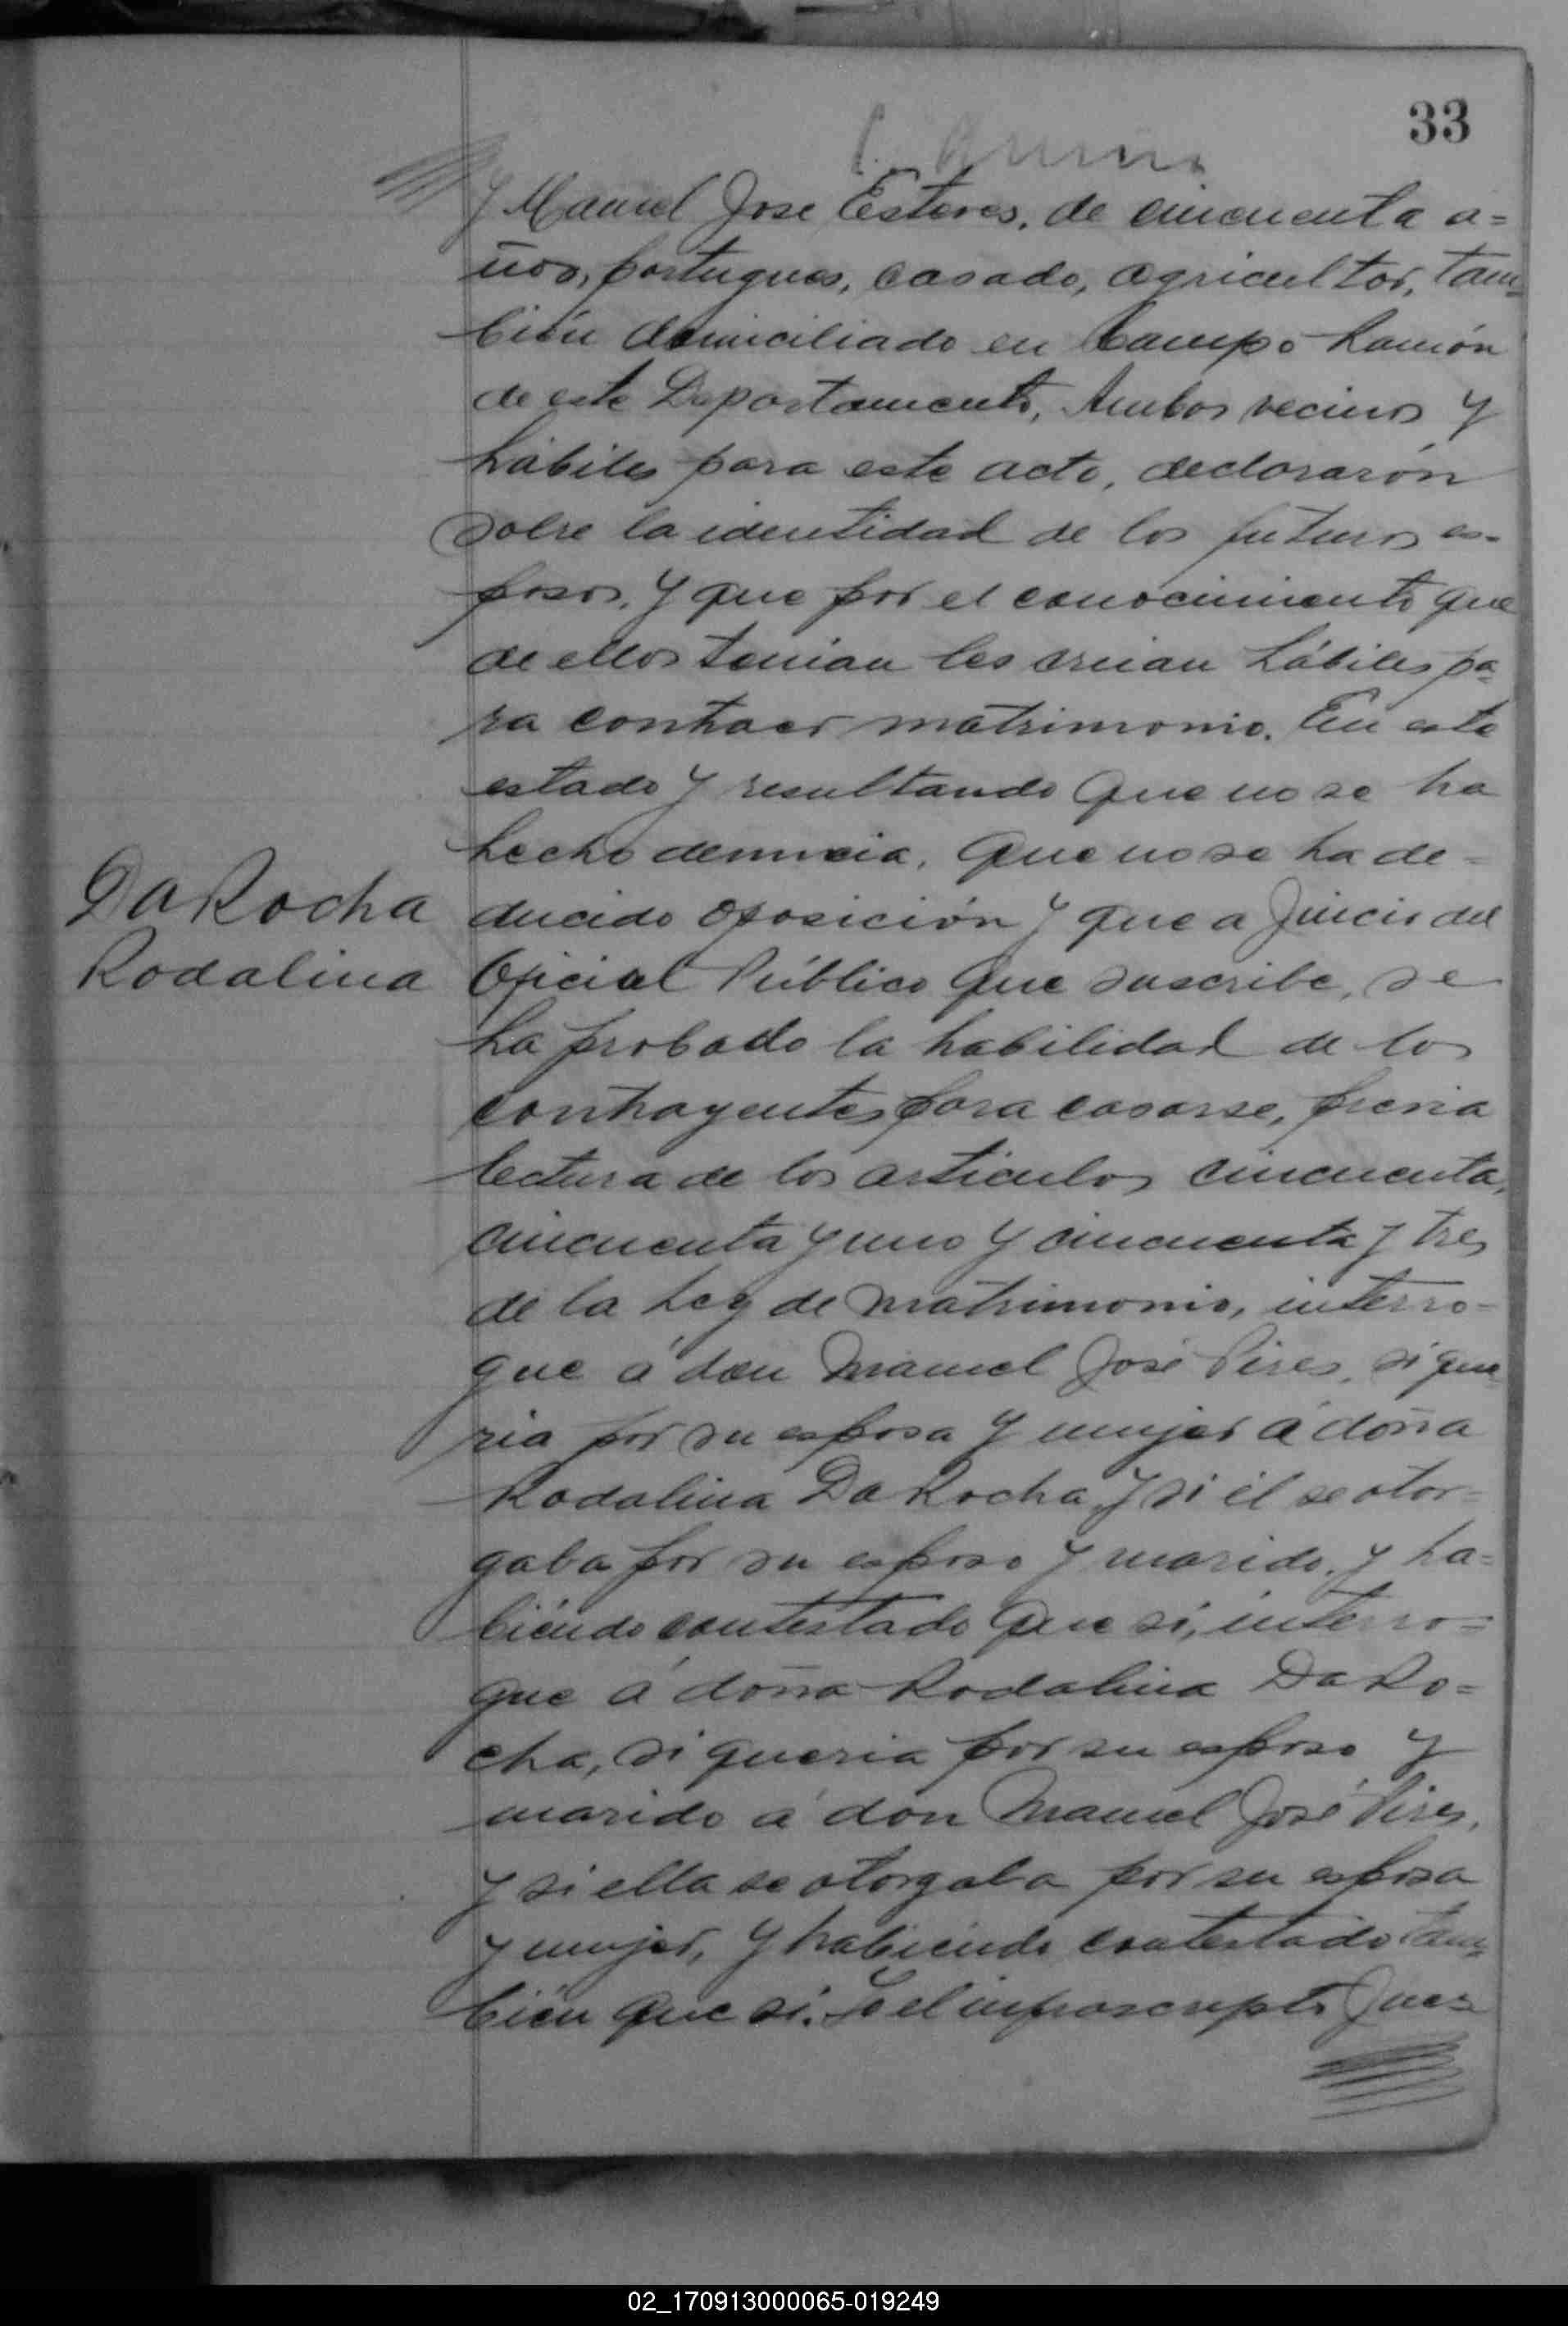 33
y Manuel Jose Esteves, de cincuenta a=
ños, portugues, casado, agricultor, tam=
bién domiciliado en Campo Ramón
de este Departamento, Ambos vecinos y
hábiles para este acto, declararón
sobre la identidad de los futuros es-
posos, y que por el conocimiento que
de ellos tenian les creian hábiles pa=
ra contraer matrimonio. En este
estado y resultando que no se ha
hecho denuncia, que no se ha de=
Da Rocha
Rodalina
ducido oposición y que a juicio del
Oficial Público que suscribe, se
ha probado la habilidad de los
contrayentes para casarse, previa
lectura de los articulos cincuenta,
cincuenta y uno y cincuenta y tres
de la Ley de matrimonio, interro=
gue á don Manuel José Pires, si que=
ria por su esposa y mujer á doña
Rodalina Da Rocha, y si él se otor=
gaba por su esposo y marido, y ha=
biéndo contestado que si, interro=
gue á doña Rodalina Da Ro=
cha, si queria por su esposo y
marido á don Manuel José Pires,
y si ella se otorgaba por su esposa
y mujer, y habiéndo contestado tam=
bién que si. Yo el infrascripto Jues
02_170913000065-019249